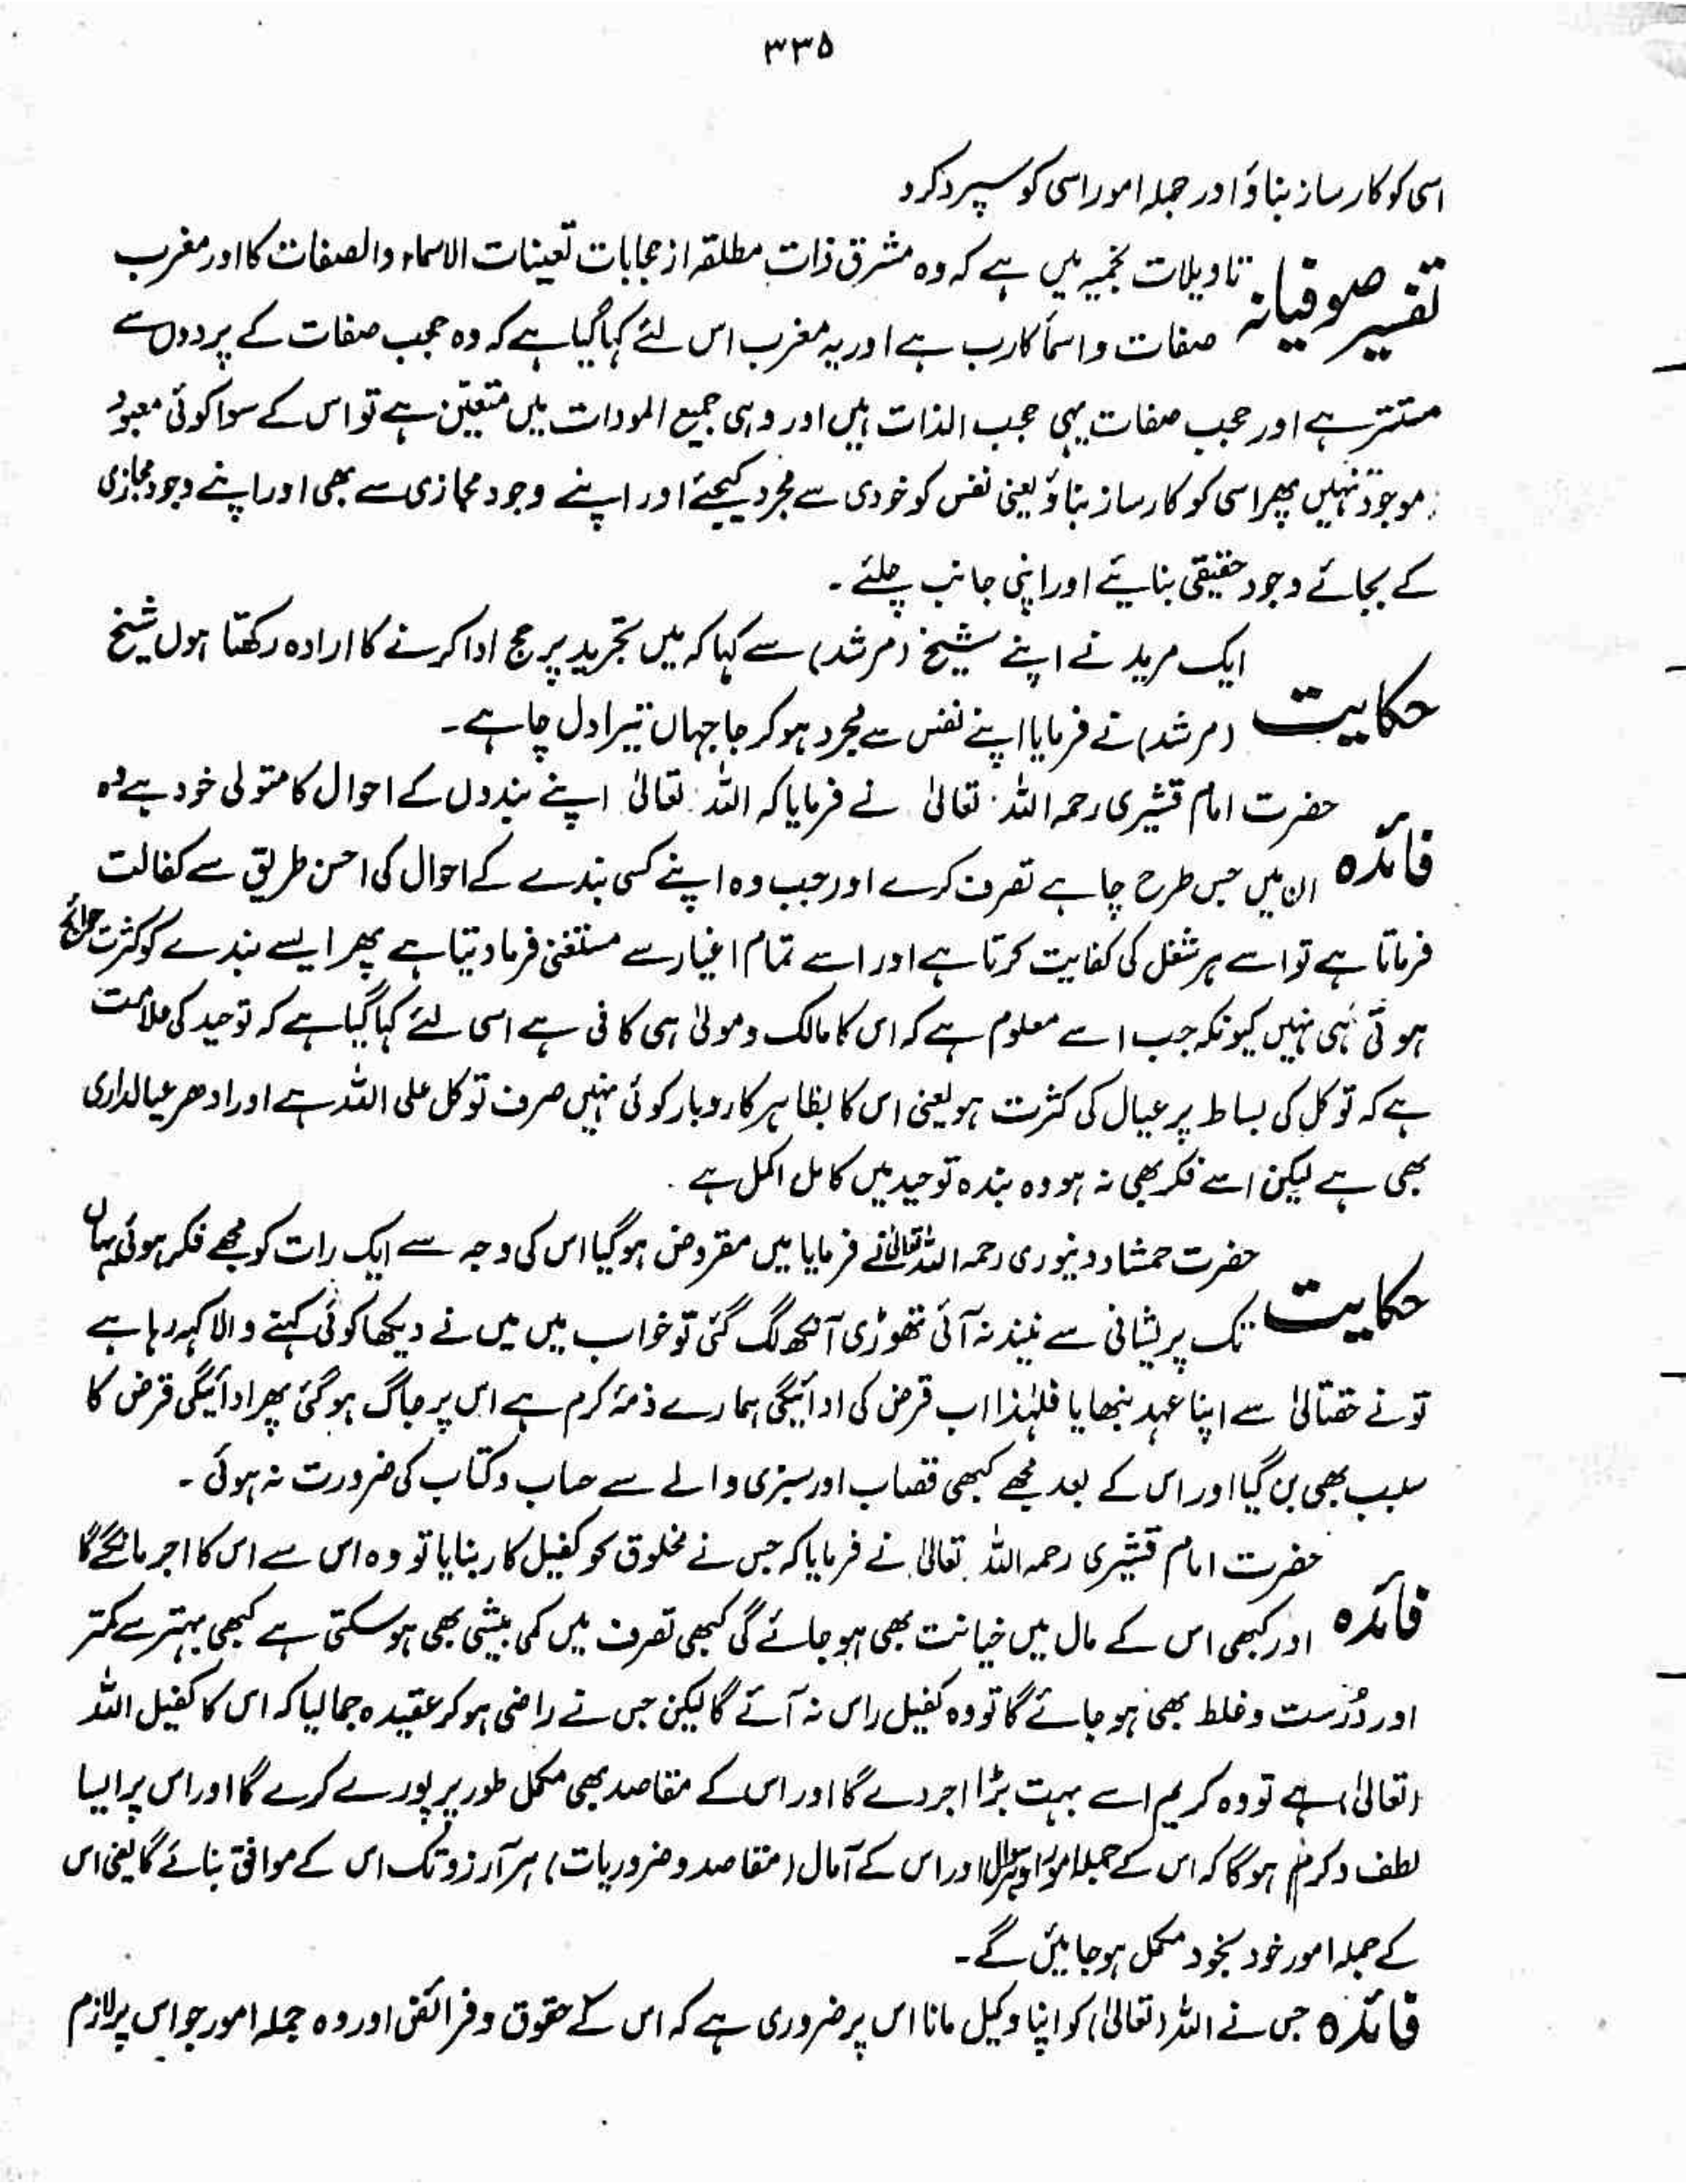 ۳۳۵
اسی کو کارساز بناؤ اور جملہ امور اسی کو سپرد کرد
تفسیر صوفیانہ تاویلات نجمیہ میں ہے کہ وہ مشرق ذات مطلقہ از حجابات تعینات الاسماء والصفات کا اور مغرب
صفات و اسماً کا رب ہے اور یہ مغرب اس لئے کہا گیا ہے کہ وہ حجب صفات کے پردوں سے
مستتر ہے اور حجب صفات یہی حجب الذات ہیں اور وہی جمیع المودات میں متعیّن ہے تو اس کے سوا کوئی معبود
موجود نہیں پھر اسی کو کارساز بناؤ یعنی نفس کو خودی سے مجرد کیجئے اور اپنے وجود مجازی سے بھی اور اپنے وجود مجازی
کے بجائے وجود حقیقی بنائیے اور اپنی جانب چلئے ۔
حکایت ایک مرید نے اپنے شیخ (مرشد) سے کہا کہ میں تجرید پر حج ادا کرنے کا ارادہ رکھتا ہوں شیخ
(مرشد) نے فرمایا اپنے نفس سے مجرد ہو کر جا جہاں تیرا دل چاہے ۔
فائدہ حضرت امام قشیری رحمہ اللہ تعالیٰ نے فرمایا کہ اللہ تعالیٰ اپنے بندوں کے احوال کا متولی خود ہے وہ
ان میں جس طرح چاہے تصرف کرے اور جب وہ اپنے کسی بندے کے احوال کی احسن طریق سے کفالت
فرماتا ہے تو اسے ہر شغل کی کفایت کرتا ہے اور اسے تمام اغیار سے مستغنی فرما دیتا ہے پھر ایسے بندے کو کثرت حوائج
ہوتی ہی نہیں کیونکہ جب اسے معلوم ہے کہ اس کا مالک و مولیٰ ہی کافی ہے اسی لئے کہا گیا ہے کہ توحید کی علامت
ہے کہ توکل کی بساط پر عیال کی کثرت ہو یعنی اس کا بظاہر کاروبار کوئی نہیں صرف توکل علی اللہ ہے اور ادھر عیالداری
بھی ہے لیکن اسے فکر بھی نہ ہو وہ بندہ توحید میں کامل اکمل ہے ۔
حکایت حضرت حمشاد دینوری رحمہ اللہ تعالیٰ نے فرمایا میں مقروض ہو گیا اس کی وجہ سے ایک رات کو مجھے فکر ہوئی یہاں
تک پریشانی سے نیند نہ آئی تھوڑی آنکھ لگ گئی تو خواب میں میں نے دیکھا کوئی کہنے والا کہہ رہا ہے
تو نے حقتالیٰ سے اپنا عہد نبھایا فلہٰذا اب قرض کی ادائیگی ہمارے ذمۂ کرم ہے اس پر جاگ ہو گئی پھر ادائیگی قرض کا
سبب بھی بن گیا اور اس کے بعد مجھے کبھی قصاب اور سبزی والے سے حساب و کتاب کی ضرورت نہ ہوئی ۔
فائدہ حضرت امام قشیری رحمہ اللہ تعالیٰ نے فرمایا کہ جس نے مخلوق کو کفیل کار بنایا تو وہ اس سے اس کا اجر مانگے گا
اور کبھی اس کے مال میں خیانت بھی ہو جائے گی کبھی تصرف میں کمی بیشی بھی ہو سکتی ہے کبھی بہتر سے کمتر
اور دُرست و غلط بھی ہو جائے گا تو وہ کفیل راس نہ آئے گا لیکن جس نے راضی ہو کر عقیدہ جما لیا کہ اس کا کفیل اللہ
(تعالیٰ) ہے تو وہ کریم اسے بہت بڑا اجر دے گا اور اس کے مقاصد بھی مکمل طور پر پورے کرے گا اور اس پر ایسا
لطف و کرم ہو گا کہ اس کے جملہ امور اور اس کے آمال (مقاصد و ضروریات) ہر آرزو تک اس کے موافق بنائے گا یعنی اس
کے جملہ امور خود بخود مکمل ہو جائیں گے ۔
فائدہ جس نے اللہ (تعالیٰ) کو اپنا وکیل مانا اس پر ضروری ہے کہ اس کے حقوق و فرائض اور وہ جملہ امور جو اس پر لازم